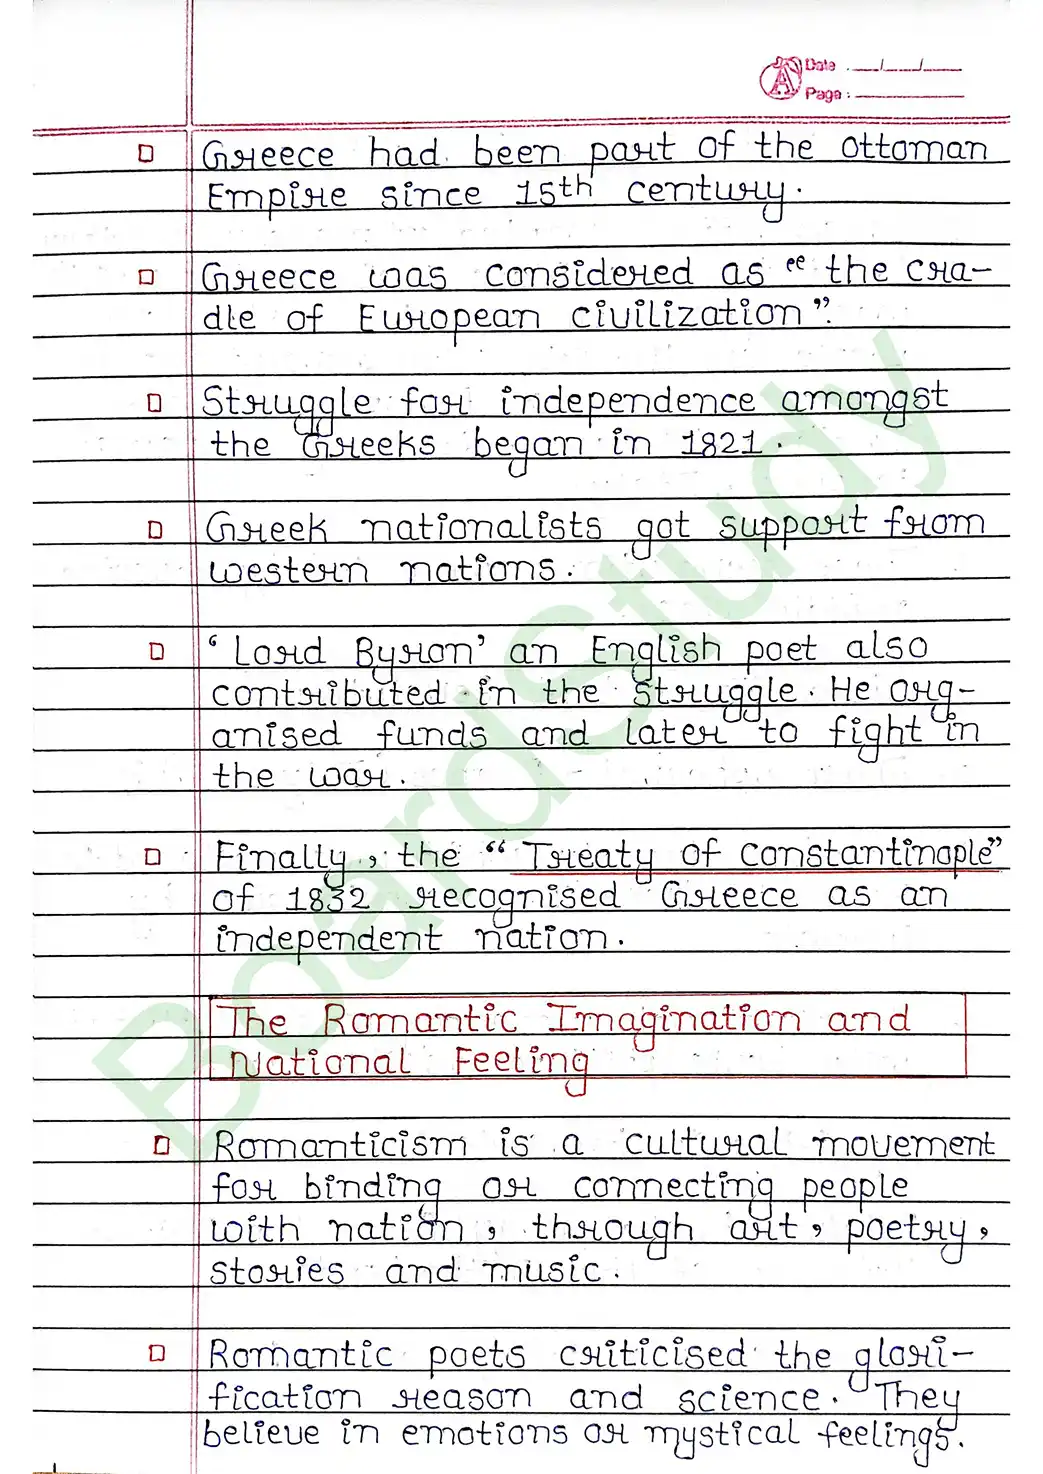 Date : __/__/__
Page : ________
Greece had been part of the Ottoman
Empire since 15th century.
Greece was considered as “ the cra-
dle of European civilization”.
Struggle for independence amongst
the Greeks began in 1821.
Greek nationalists got support from
western nations.
‘Lord Byron’ an English poet also
contributed in the struggle. He org-
anised funds and later to fight in
the war.
Finally, the “Treaty of Constantinople”
of 1832 recognised Greece as an
independent nation.
The Romantic Imagination and
National Feeling
Romanticism is a cultural movement
for binding or connecting people
with nation, through art, poetry,
stories and music.
Romantic poets criticised the glori-
fication reason and science. They
believe in emotions or mystical feelings.
BoardStudy